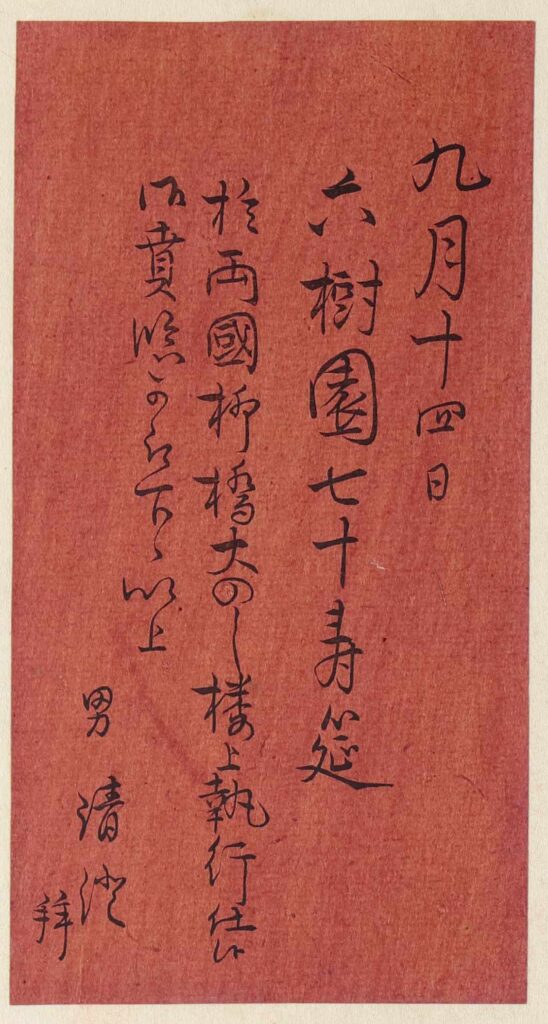 九月十四日
六樹園七十寿筵
於両國柳橋大のし楼上執行仕候
御賁臨可被下候以上
男 清澄
拝